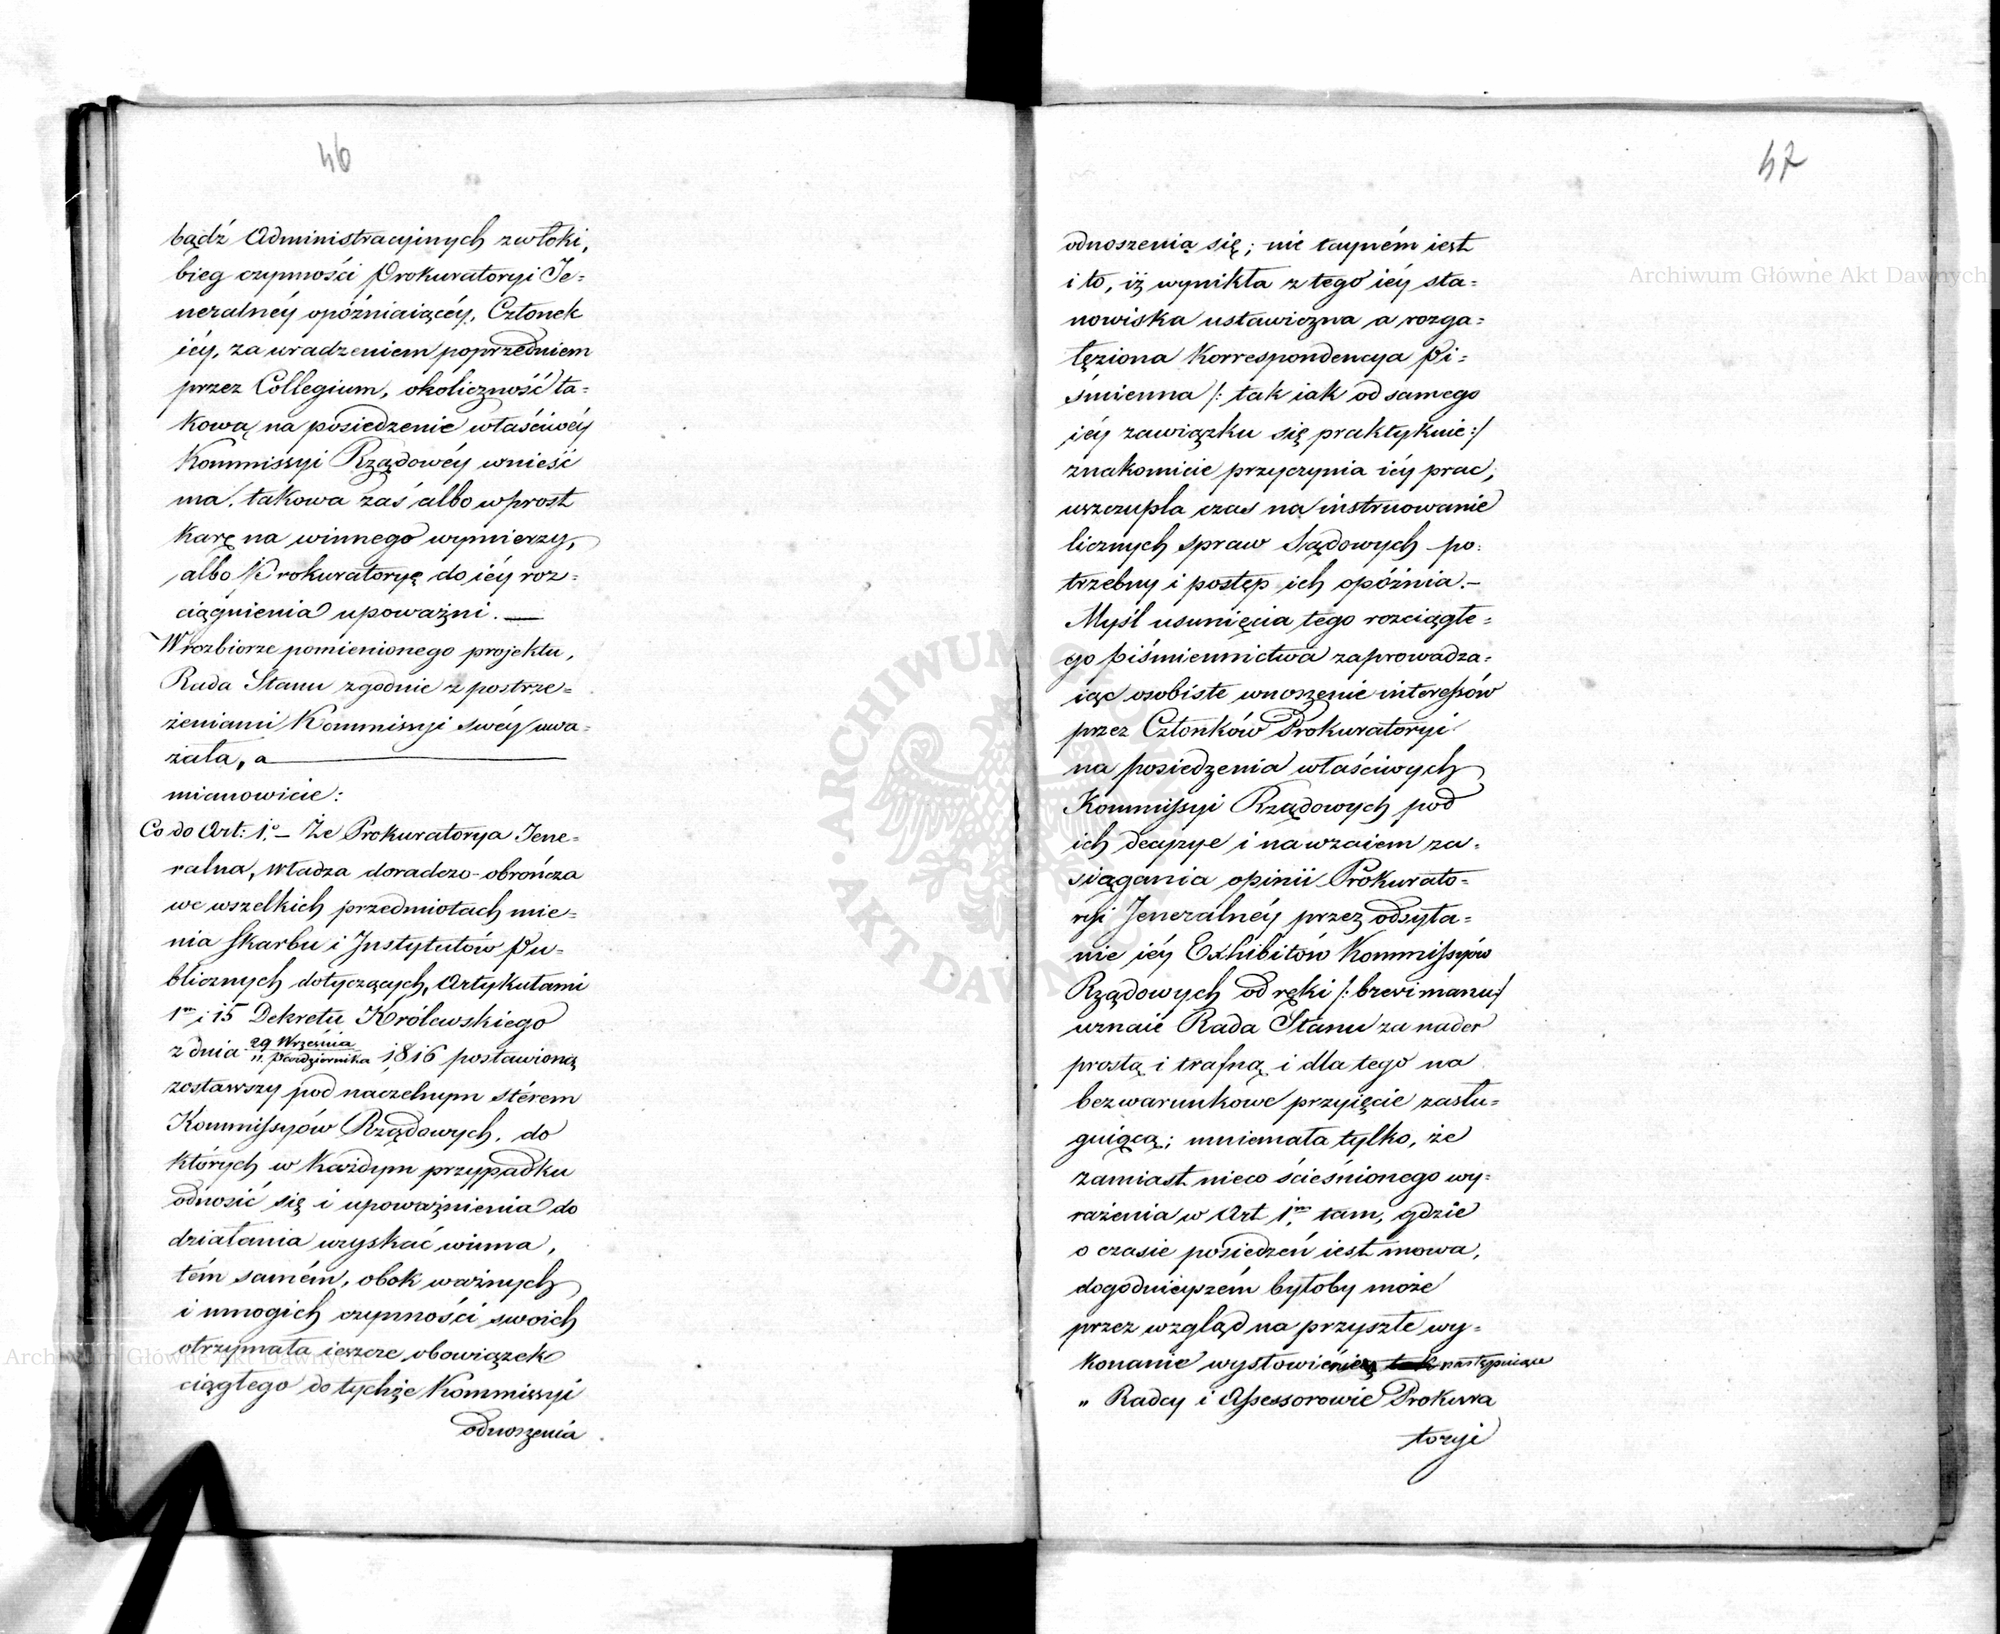 46
bądź Administracyinych zwłoki,
bieg czynności Prokuratoryi Je=
neralnéy opóźniaiącéy, Członek
iéy, za uradzeniem poprzedniem
przez Collegium, okoliczność ta=
kową na posiedzenie właściwéy
Kommissyi Rządowéy wnieść
ma, takowa zaś albo wprost
karę na winnego wymierzy,
albo Prokuratoryę do iéy roz=
ciągnienia upoważni. —
W rozbiorze pomienionego projektu,
Rada Stanu zgodnie z postrze=
żeniami Kommissyi swéy uwa=
żała, a
mianowicie:
Co do Art: 1.º – Że Prokuratorya Jene=
ralna, władza doradczo-obrończa
we wszelkich przedmiotach mie=
nia Skarbu i Instytutów Pu=
blicznych dotyczących, Artykułami
1ᵐ i 15 Dekretu Królewskiego
z dnia 29 Września / 11. Października 1816 postawioną
zostawszy pod naczelnym stérem
Kommissyów Rządowych, do
których w każdym przypadku
odnosić się i upoważnienia do
działania uzyskać winna,
tém samém, obok ważnych
i mnogich czynności swoich
otrzymała ieszcze obowiązek
ciągłego do tychże Kommissyi
odnoszenia
47
odnoszenia się; nie tayném iest
i to, iż wynikła z tego iéy sta=
nowiska ustawiczna a rozga=
łęziona Korrespondencya Pi=
śmienna /: tak iak od samego
iéy zawiązku się praktykuie :/
znakomicie przyczynia iéy prac,
uszczupla czas na instruowanie
licznych spraw Sądowych po=
trzebny i postęp ich opóźnia. –
Myśl usunięcia tego rozciągłe=
go piśmiennictwa zaprowadza=
iąc osobiste wnoszenie interessów
przez Członków Prokuratoryi
na posiedzenia właściwych
Kommissyi Rządowych pod
ich decyzye i nawzaiem za=
siągania opinii Prokurato=
ryi Jeneralnéy przez odsyła=
nie iéy Exhibitów Kommissyów
Rządowych od ręki /: brevi manu :/
uznaie Rada Stanu za nader
prostą i trafną i dla tego na
bezwarunkowe przyięcie zasłu=
guiącą; mniemała tylko, że
zamiast nieco ścieśnionego wy=
rażenia w Art 1ᵐ, tam, gdzie
o czasie posiedzeń iest mowa,
dogodnieyszém byłoby może
przez wzgląd na przyszłe wy=
konanie wysłowienie następuiące
„ Radcy i Assessorowie Prokura
toryi
Archiwum Główne Akt Dawnych
Archiwum Główne Akt Dawnych
ARCHIWUM GŁÓWNE AKT DAWNYCH